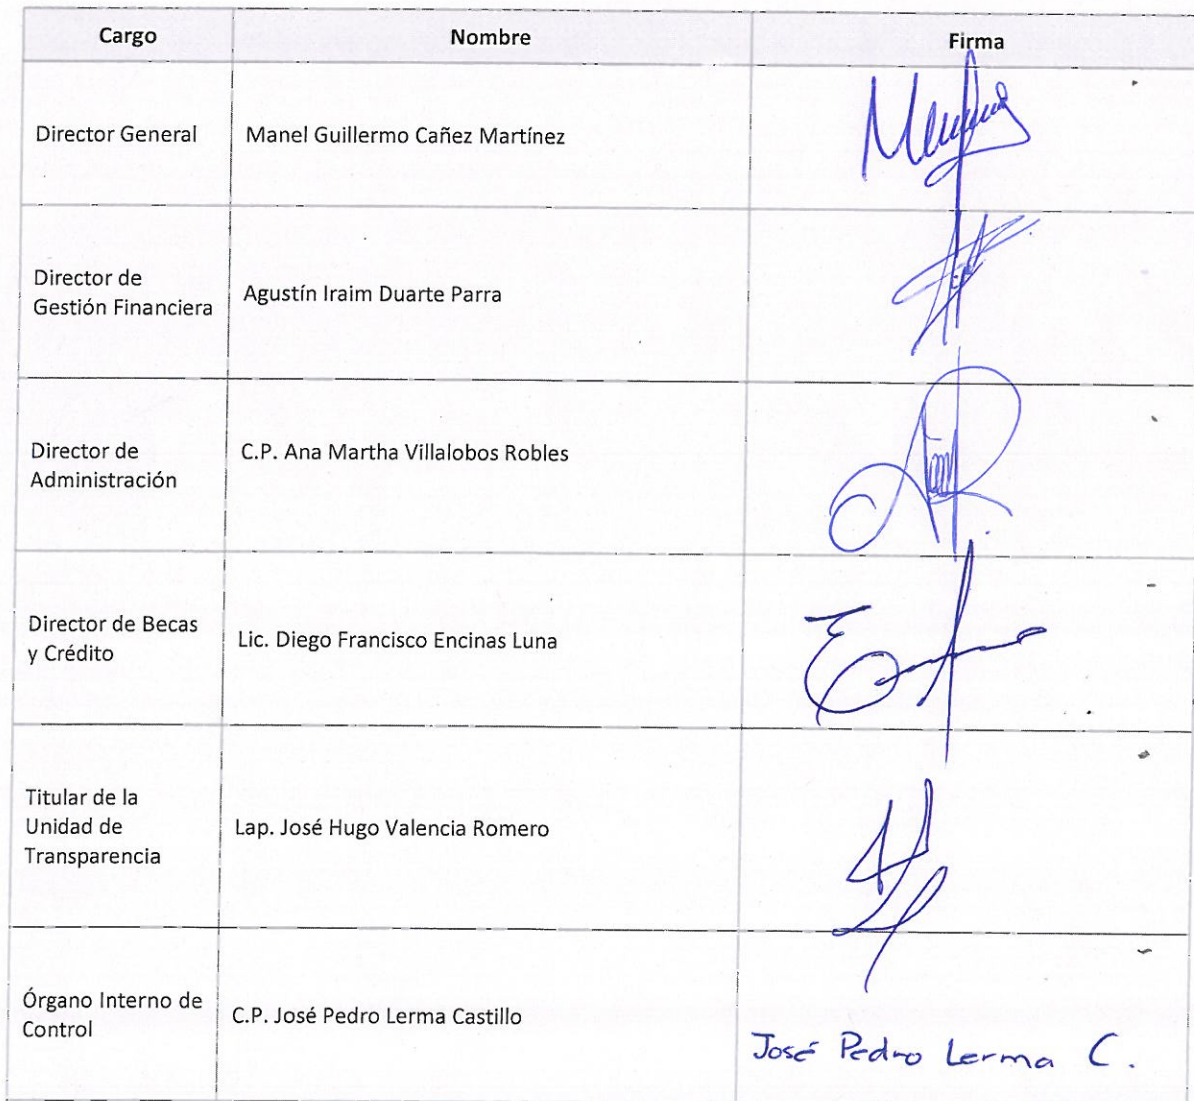 Cargo Nombre Firma
Director General Manel Guillermo Cañez Martínez
Director de
Gestión Financiera Agustín Iraim Duarte Parra
Director de
Administración C.P. Ana Martha Villalobos Robles
Director de Becas
y Crédito Lic. Diego Francisco Encinas Luna
Titular de la
Unidad de
Transparencia Lap. José Hugo Valencia Romero
Órgano Interno de
Control C.P. José Pedro Lerma Castillo
José Pedro Lerma C.